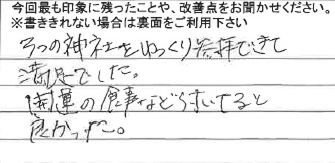 今回最も印象に残ったことや、改善点をお聞かせください。
※書ききれない場合は裏面をご利用下さい
3つの神社をゆっくり参拝できて
満足でした。
開運の食事など付いてると
良かった。